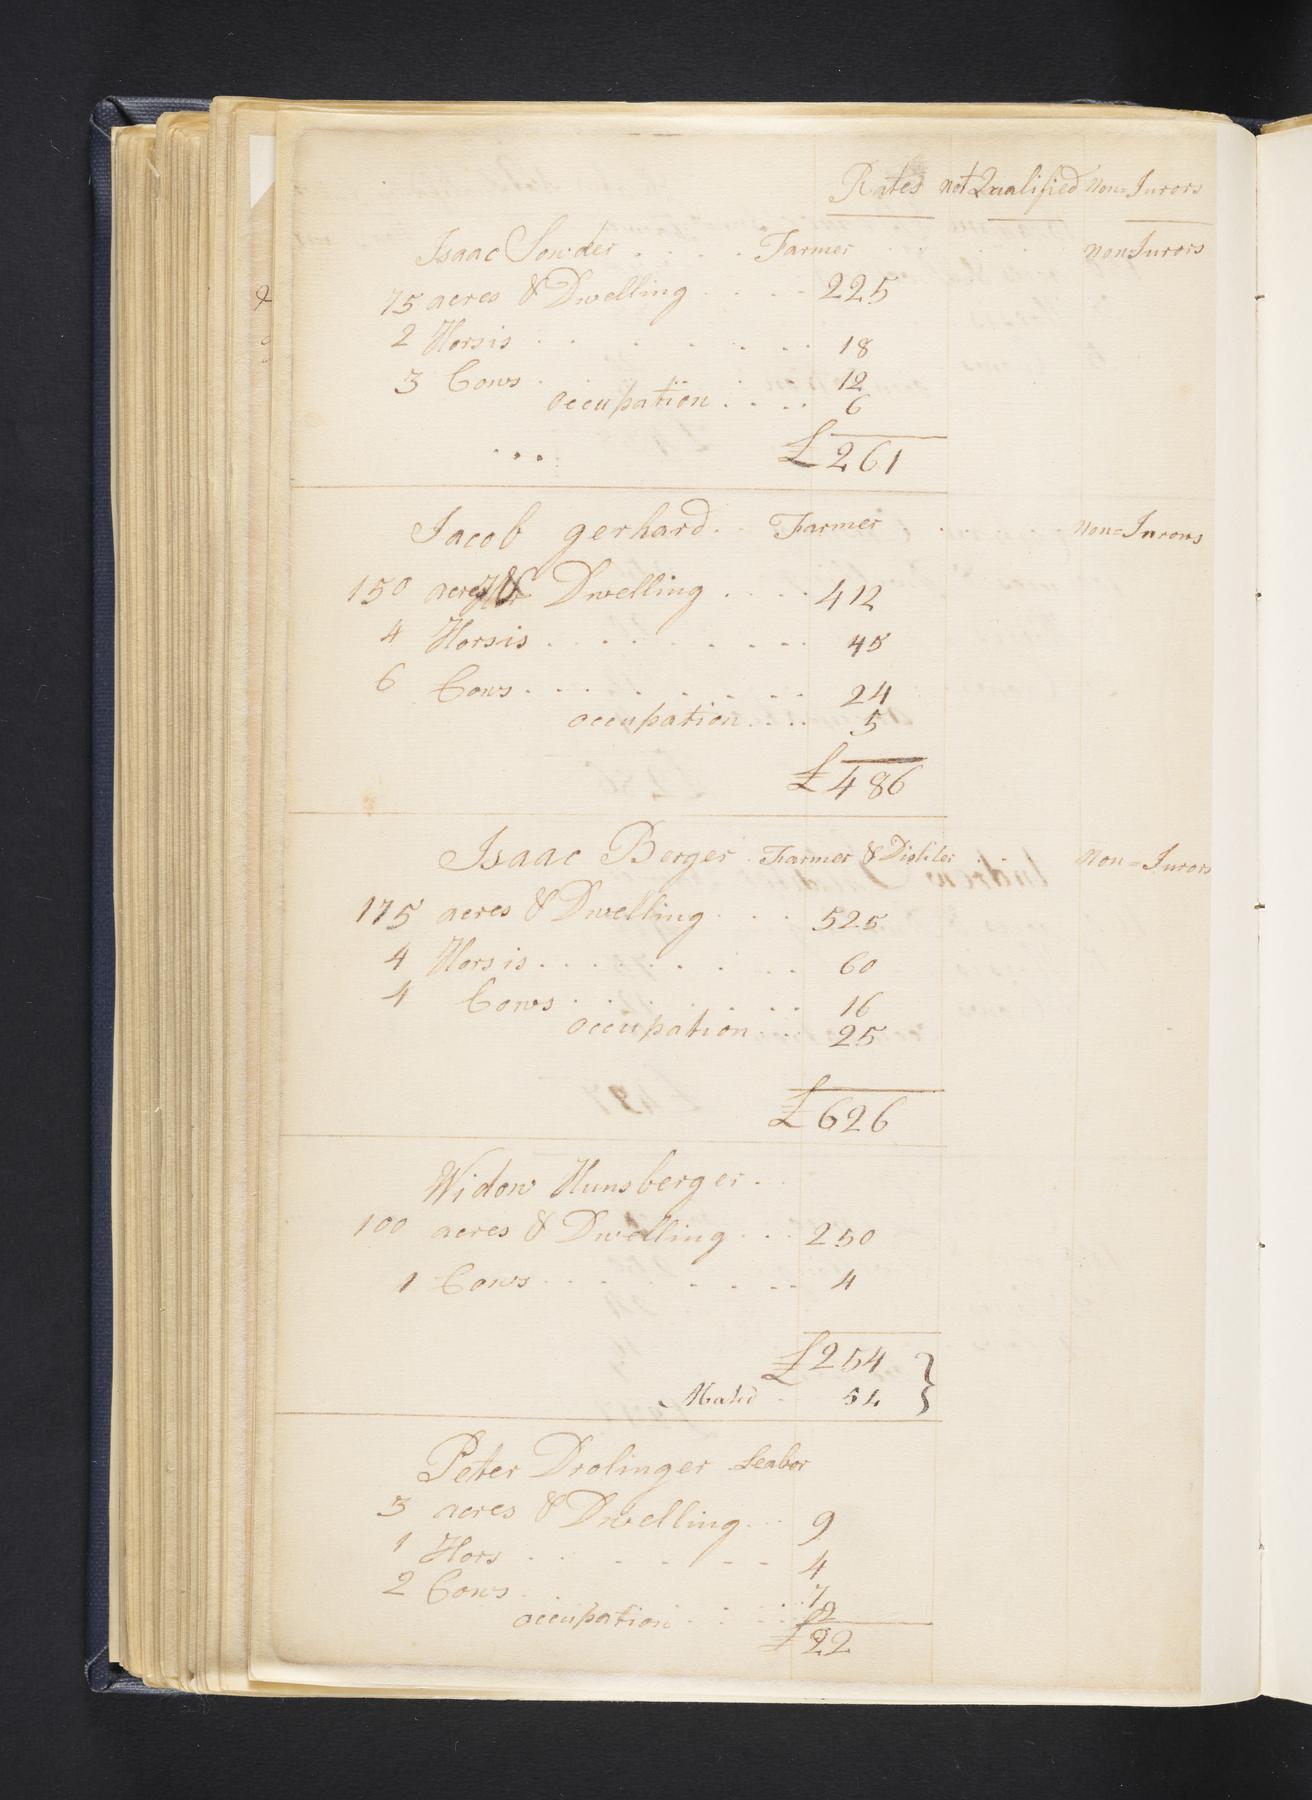 Rates not Qualified Non=Jurors
Isaac Sowder . . . . Farmer Non=Jurors
75 acres & Dwelling . . . . 225
2 Horsis . . . . . . . 18
3 Cows . . . . . 12
occupation . . . . 6
£261
Jacob gerhard . . Farmer . . Non=Jurors
150 acres & Dwelling . . . . 412
4 Horsis . . . . . . . . 45
6 Cows . . . . . . . . 24
occupation . . . . 5
£486
Isaac Berger . Farmer & Distiler . . Non=Jurors
175 acres & Dwelling . . . 525
4 Horsis . . . . . . . . 60
4 Cows . . . . . . . 16
occupation . . . 25
£626
Widow Hunsberger .
100 acres & Dwelling . . . 250
1 Cows . . . . . . . . 4
£254 }
54
Peter Drolinger . Leabor
3 acres & Dwelling . . . 9
1 Hors . . . . . . . 4
2 Cows . . . 7
occupation . . . . 2
£22